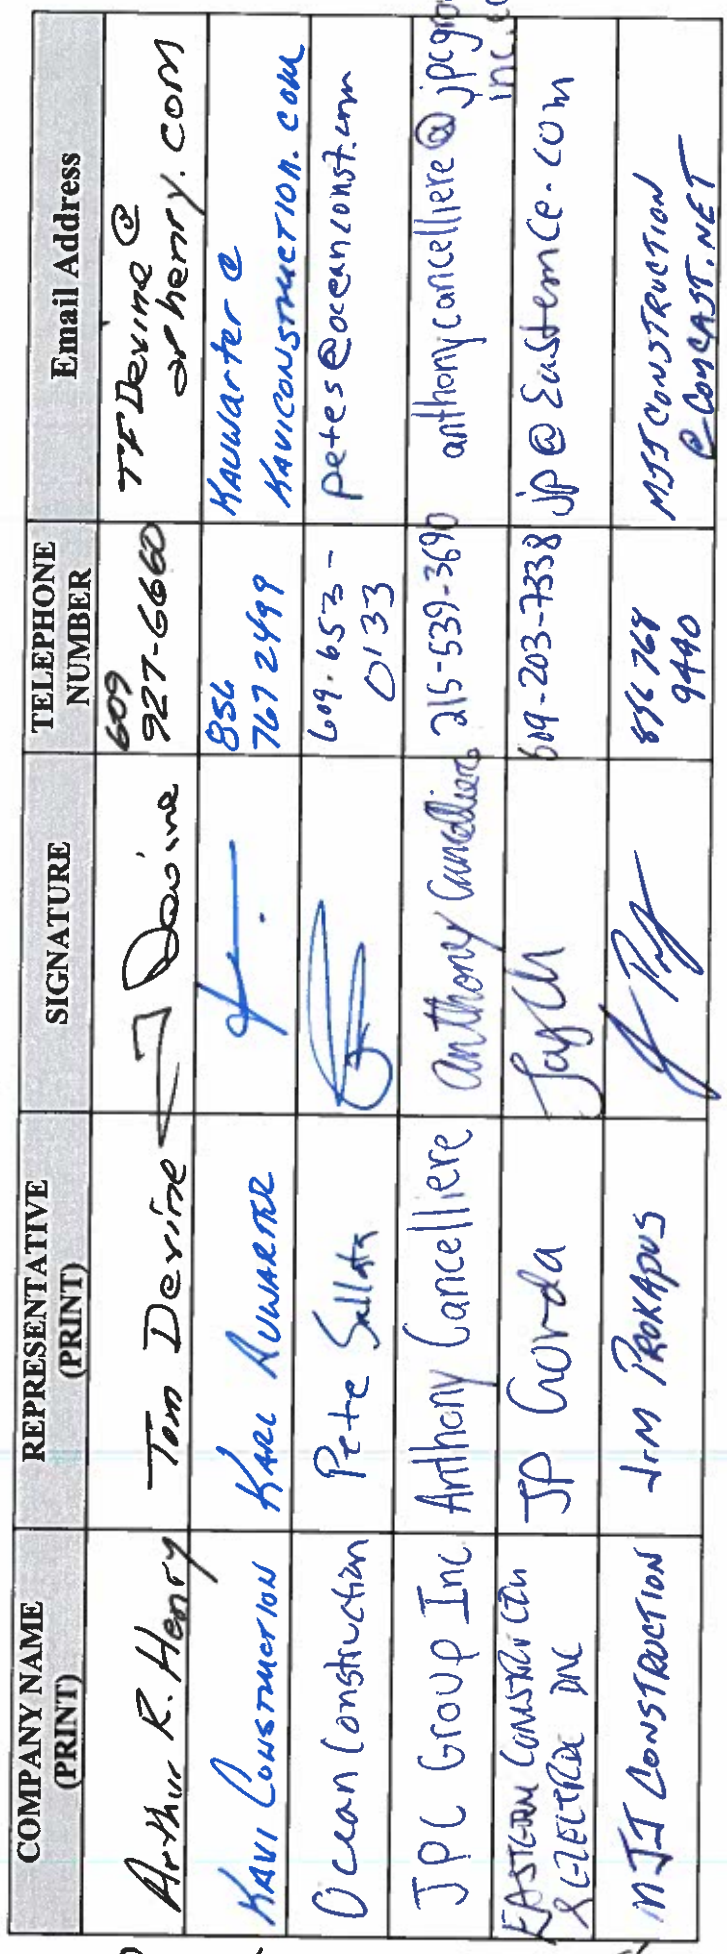 COMPANY NAME (PRINT) REPRESENTATIVE (PRINT) SIGNATURE TELEPHONE NUMBER Email Address
Arthur R. Henry Tom Devine T Devine 609 927-6660 TFDevine@
arhenry.com
KAVI CONSTRUCTION KARL AUWARTER 856 767 2499 KAUWarter@
KAVICONSTRUCTION.COM
Ocean Construction Pete Sallata 609.653-0133 petes@oceanconst.com
JPC Group Inc. Anthony Cancelliere Anthony Cancelliere 215-539-3690 anthonycancelliere@jpcgro
inc.co
EASTERN CONSTRUCTION
& ELECTRIC INC JP Gorda 609-203-7338 jp@Easternce.com
MJJ CONSTRUCTION JIM PROKAPUS 856 768 9440 MJJCONSTRUCTION
@COMCAST.NET